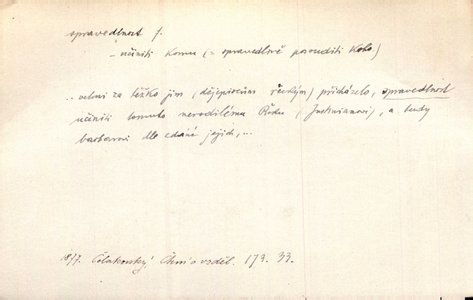 spravedlnost f.
– učiniti komu (= spravedlivě posouditi koho)
.. velmi za těžko jim (dějepiscům řeckým) přicházelo, spravedlnost
učiniti tomuto nerodilému Řeku (Justinianovi), a tedy
barbarovi dle zdání jejich, ...
1877 Čelakovský, Čtení o vzděl. 173. 33.